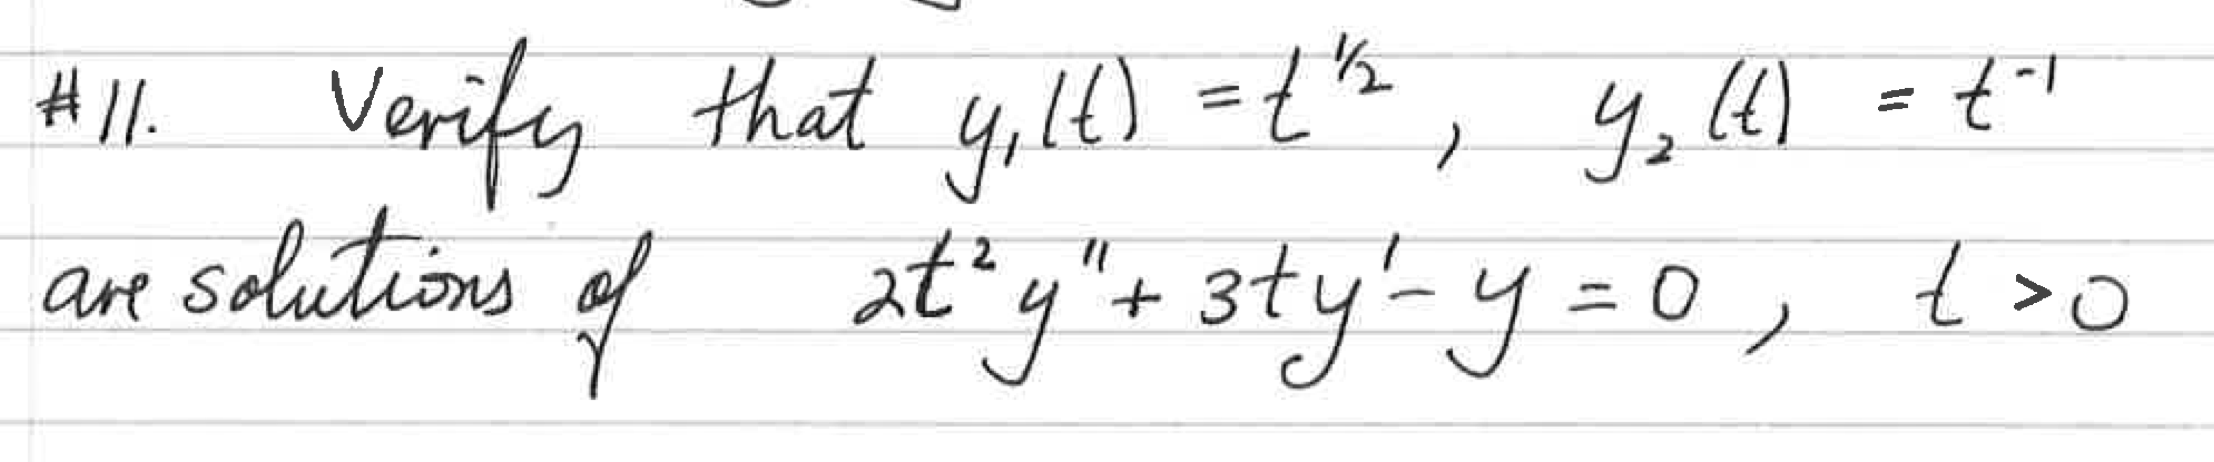 #11. Verify that y₁(t) = t^{1/2}, y₂(t) = t^{-1}
are solutions of 2t²y" + 3ty' - y = 0, t > 0